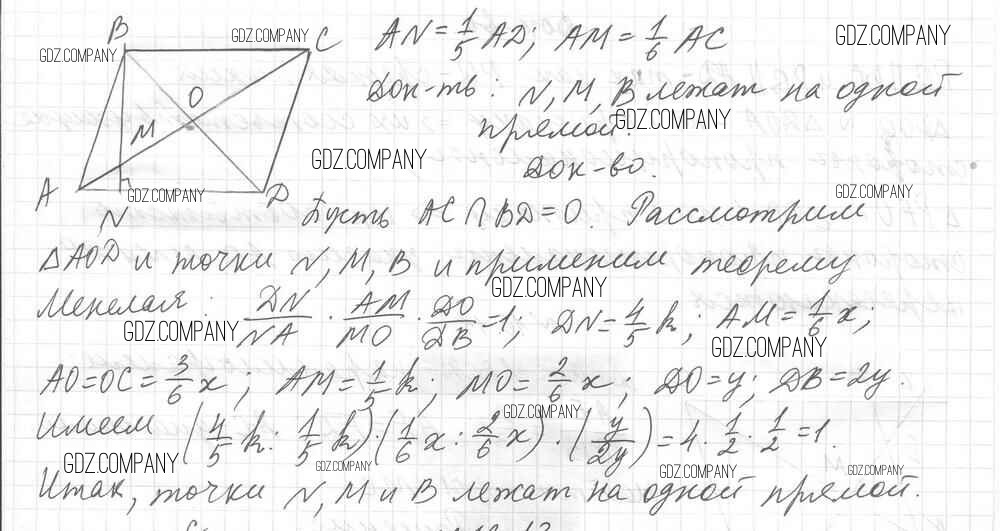 B
C
GDZ.COMPANY
GDZ.COMPANY
AN = 1/5 AD; AM = 1/6 AC
GDZ.COMPANY
O
M
Док-ть: N, M, B лежат на одной
прямой.
GDZ.COMPANY
GDZ.COMPANY
Док-во.
A
D
N
GDZ.COMPANY
GDZ.COMPANY
Пусть AC ∩ BD = O. Рассмотрим
ΔAOD и точки N, M, B и применим теорему
GDZ.COMPANY
Менелая: DN/NA · AM/MO · DO/DB = 1; DN = 4/5 k; AM = 1/6 x;
GDZ.COMPANY
GDZ.COMPANY
AO = OC = 3/6 x; AM = 1/5 k; MO = 2/6 x; DO = y; DB = 2y.
GDZ.COMPANY
Имеем (4/5 k : 1/5 k) · (1/6 x : 2/6 x) · (y/2y) = 4 · 1/2 · 1/2 = 1.
GDZ.COMPANY
GDZ.COMPANY
GDZ.COMPANY
GDZ.COMPANY
Итак, точки N, M и B лежат на одной прямой.